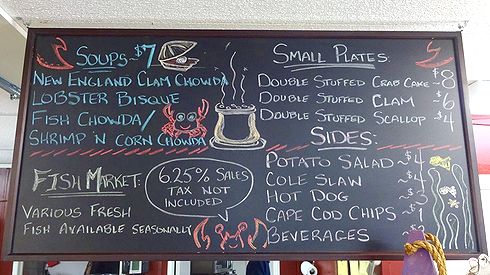 Soups~ $7
New England Clam Chowda
Lobster Bisque
Fish Chowda/
Shrimp 'n Corn Chowda
Fish Market:
Various Fresh
Fish Available Seasonally
625% Sales
Tax Not
Included
Small Plates:
Double Stuffed Crab Cake ~ $8
Double Stuffed Clam ~ $6
Double Stuffed Scallop ~ $4
Sides:
Potato Salad ~ $4
Cole Slaw ~ $4
Hot Dog ~ $3
Cape Cod Chips ~
Beverages ~